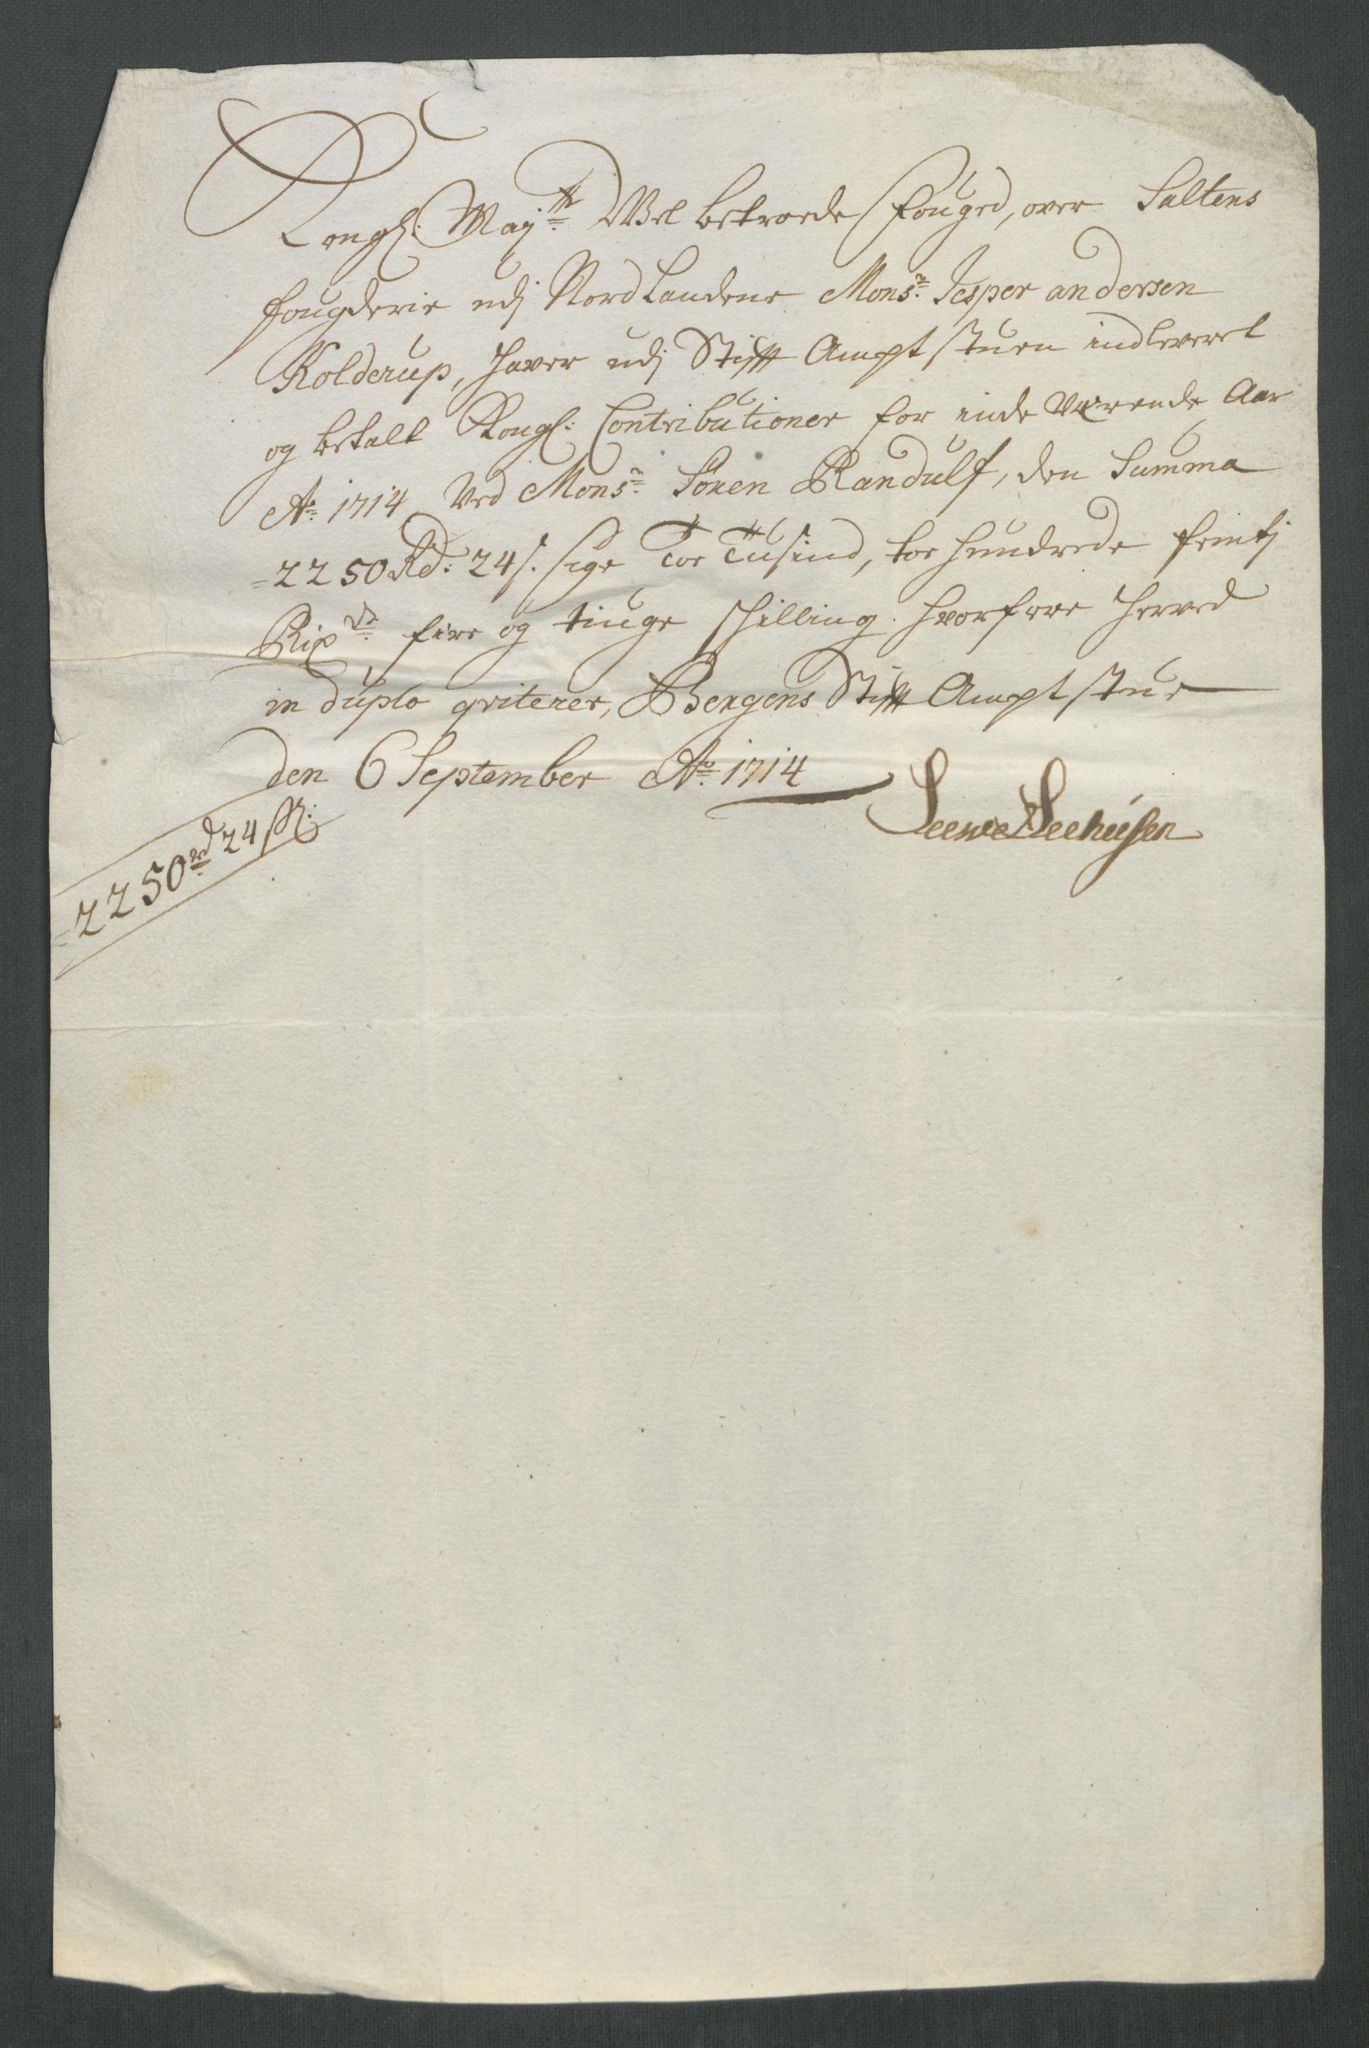 Kongl: Maj:tz Wel betroede fouged, over Saltens
fougderie udj Nordlandene Mons:r Jesper andersen
Kolderup, haver udj Stifft Ampt stuen indleveret
og betalt Kongl: Contributioner for inde Værende Aar
Ao: 1714 Ved Mons:r Sören Randulf, den Summa
=2250 Rd: 24 s. sige Toe Tusind, toe hundrede femti
Rixdr fire og tiuge schilling. hvorfore herved
in duplo qviterer, Bergens Stifft Ampt stue
den 6 September Ao: 1714
Seewe Seehusen
=2250 rd 24 sk: